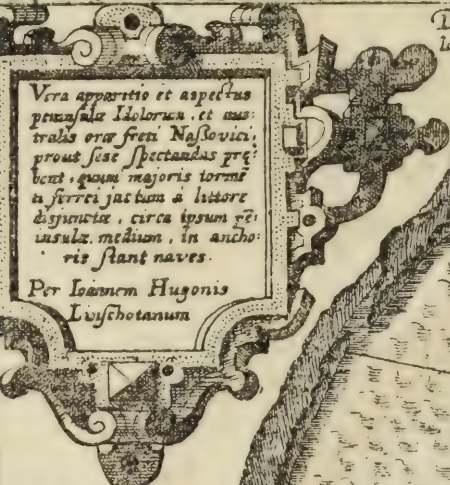 Vera apparitio et aspectus
peninsulæ Idolorum, et aus:
tralis oræ freti Naßovici,
prout ſese ſpectandas prę:
bent, quum majoris tormē
ti ferrei jactum a littore
disjunctæ, circa ipsum pē:
insulæ, medium, in ancho:
ris ſtant naves.
Per Ioannem Hugonis
Linſchotanum